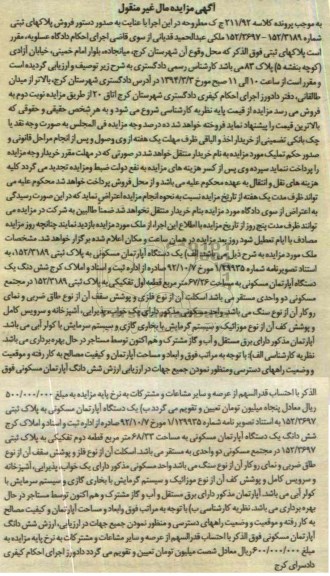 آگهی مزایده مال غیر منقول
به موجب پرونده کلاسه ۲۱۱/۹۲ ج ک مطروحه در این اجرا با عنایت به صدور دستور فروش پلاکهای ثبتی
شماره ۱۵۲/۳۱۸۹ – ۱۵۲/۳۶۹۷ ملکی عبدالحمید قدیانی از سوی قاضی اجرای احکام دادگاه صلویه، مقرر
است پلاکهای ثبتی فوق الذکر که محل وقوع آن شهرستان کرج، میانجاده، بلوار امام خمینی، خیابان آزادی
(کوچه بنفشه ۵) پلاک ۸۳ می باشد کارشناس رسمی دادگستری به شرح زیر توصیف و ارزیابی گردیده است
و مقرر است از ساعت ۱۰ الی ۱۱ صبح مورخ ۱۳۹۴/۳/۳ در آدرس دادگستری شهرستان کرج، بالاتر از میدان
طالقانی، دفتر دادورز اجرای احکام کیفری دادگستری شهرستان کرج اتاق ۲۰ از طریق مزایده نوبت دوم به
فروش می رسد مزایده از قیمت پایه نظریه کارشناسی شروع می شود و به هر شخص حقیقی و حقوقی که
بالاترین قیمت را پیشنهاد نماید فروخته خواهد شد ده درصد وجه مزایده فی المجلس به صورت وجه نقد یا
چک بانکی تضمینی از خریدار اخذ و الباقی ظرف مهلت یک هفته از وی وصول و پس از انجام مراحل قانونی و
صدور حکم تملیک مورد مزایده به نام خریدار منتقل خواهد شد در صورتی که در مهلت مقرر خریدار وجه مزایده
را پرداخت ننماید سپرده وی پس از کسر هزینه های مزایده به نفع دولت ضبط و مزایده تجدید می گردد کلیه
هزینه های نقل و انتقال به عهده محکوم علیه می باشد و از محل فروش پرداخت خواهد شد محکوم علیه می
تواند ظرف مدت یک هفته از تاریخ مزایده نسبت به نحوه انجام مزایده اعتراض نماید که در این صورت رسیدگی
به اعتراض از سوی دادگاه مورد مزایده بنام خریدار منتقل نخواهد شد ضمنا طالبین به شرکت در مزایده می
توانند ظرف مدت پنج روز از تاریخ مزایده با اطلاع این اجرا، از ملک مورد مزایده بازدید نمایند چنانچه روز مزایده
مصادف با ایام تعطیل شود روز بعد مزایده در همان ساعت و مکان اعلام شده برگزار خواهد شد. مشخصات
ملک مورد مزایده به شرح ذیل می باشد: الف) یک دستگاه آپارتمان مسکونی به پلاک ثبتی ۱۵۲/۳۱۸۹، به
استناد تصویرنامه شماره ۱/۲۹۹۳۵ مورخ ۹۲/۱۰/۷ صادره از اداره ثبت و اسناد و املاک کرج شش دانگ یک
دستگاه آپارتمان مسکونی به مساحت ۶۷/۲۶ متر مربع قطعه اول تفکیکی به پلاک ثبتی ۱۵۲/۳۱۸۹ در مجتمع
مسکونی دو واحدی مستقر می باشد اسکلت آن از نوع فلزی و پوشش سقف آن از نوع طاق ضربی و نمای
روکار آن از نوع سنگ می باشد، واحد مسکونی مذکور دارای یک خواب، پذیرایی، آشپزخانه و سرویس کامل
و پوشش کف آن از نوع موزائیک و سیستم گرمایش با بخاری گازی و سیستم سرمایش با کولر آبی می باشد.
آپارتمان مذکور دارای برق مستقل و آب و گاز مشترک و هم اکنون توسط مستاجر در حال بهره برداری می باشد.
نظریه کارشناسی الف): با توجه به مراتب فوق و ابعاد و مساحت آپارتمان و کیفیت مصالح به کار رفته و موقعیت
و وضعیت راههای دسترسی و منظور نمودن جمیع جهات در ارزیابی ارزش شش دانگ آپارتمان مسکونی فوق
الذکر با احتساب قدرالسهم از عرصه و سایر مشاعات و مشترکات به نرخ پایه مزایده به مبلغ ۵۰۰/۰۰۰/۰۰۰
ریال معادل پنجاه میلیون تومان تعیین و تقویم می گردد ب) یک دستگاه آپارتمان مسکونی به پلاک ثبتی
۱۵۲/۳۶۹۷ به استناد تصویر نامه شماره ۱/۲۹۹۳۵ مورخ ۹۲/۱۰/۷ صادره از اداره ثبت و اسناد و املاک کرج
شش دانگ یک دستگاه آپارتمان مسکونی به مساحت ۶۸/۳۳ متر مربع قطعه دوم تفکیکی به پلاک ثبتی
۱۵۲/۳۶۹۷ در مجتمع مسکونی دو واحدی به مستقر می باشد. اسکلت آن از نوع فلز و پوشش سقف آن از نوع
طاق ضربی و نمای روکار آن از نوع سنگ می باشد واحد مسکونی مذکور دارای یک خواب، پذیرایی، آشپزخانه
و سرویس کامل و پوشش کف آن از نوع موزائیک و سیستم گرمایش با بخاری گازی و سیستم سرمایش با
کولر آبی می باشد. آپارتمان مذکور دارای برق مستقل و آب و گاز مشترک و هم اکنون توسط مستاجر در حال
بهره برداری می باشد. نظریه کارشناسی ب) با توجه به مراتب فوق و ابعاد و مساحت آپارتمان و کیفیت مصالح
به کار رفته و موقعیت و وضعیت راههای دسترسی و منظور نمودن جمیع جهات در ارزیابی، ارزش شش دانگ
آپارتمان مسکونی فوق الذکر با احتساب قدرالسهم از عرصه و سایر مشاعات و مشترکات به نرخ پایه مزایده به
مبلغ ۶۰۰/۰۰۰/۰۰۰ ریال معادل شصت میلیون تومان تعیین و تقویم می گردد دادورز اجرای احکام کیفری
دادسرای کرج